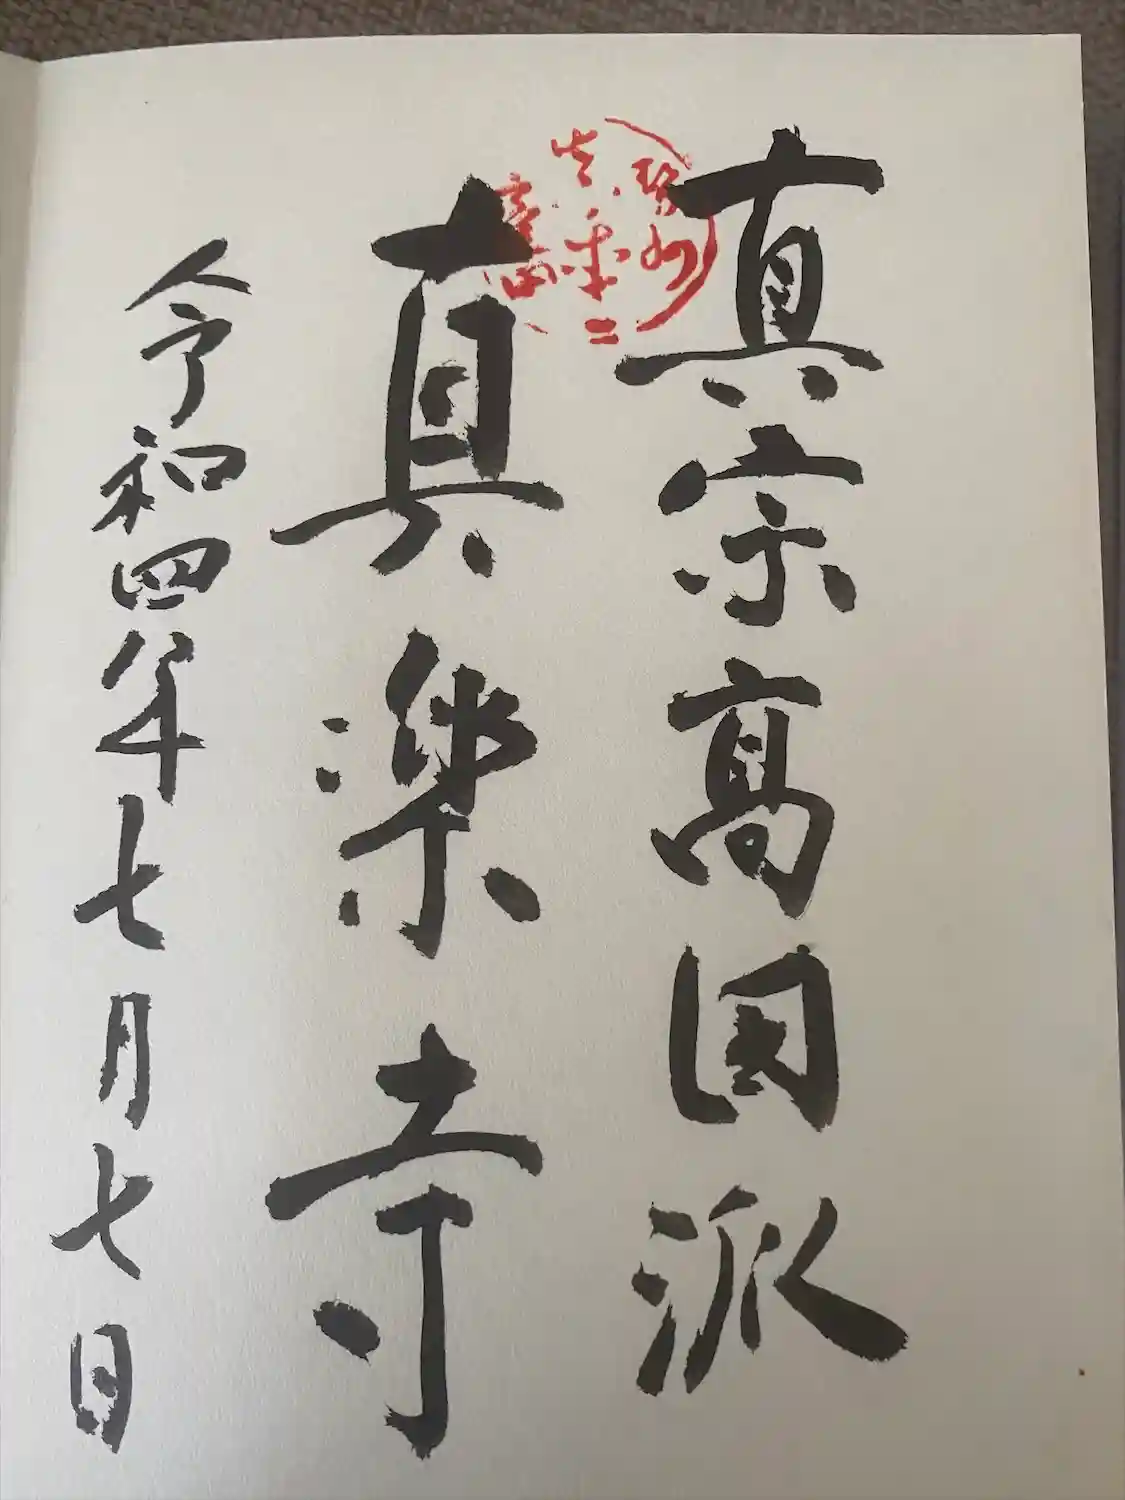 真宗高田派
真楽寺
令和四年七月七日